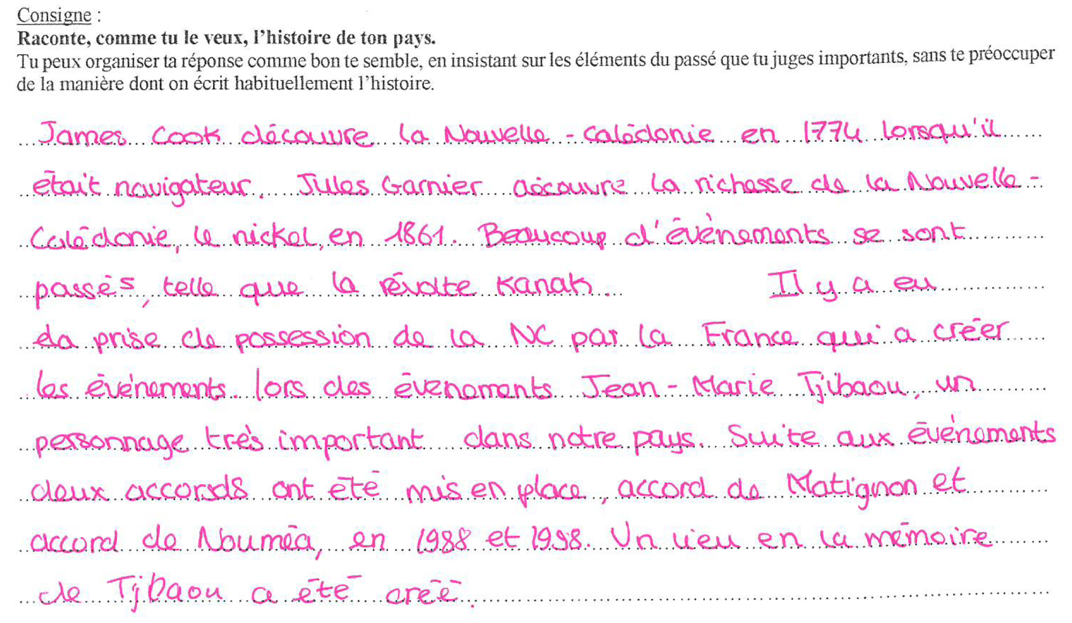 Consigne :
Raconte, comme tu le veux, l'histoire de ton pays.
Tu peux organiser ta réponse comme bon te semble, en insistant sur les éléments du passé que tu juges importants, sans te préoccuper
de la manière dont on écrit habituellement l'histoire.
James Cook découvre la Nouvelle-Calédonie en 1774 lorsqu'il
était navigateur. Jules Garnier découvre la richesse de la Nouvelle-
Calédonie, le nickel, en 1861. Beaucoup d'évènements se sont
passés, telle que la révolte Kanak. Il y a eu
la prise de possession de la NC par la France qui a créer
les événements lors des évenements Jean-Marie Tjibaou, un
personnage très important dans notre pays. Suite aux événements
deux accords ont été mis en place, accord de Matignon et
accord de Nouméa, en 1988 et 1998. Un lieu en la mémoire
de Tjibaou a été créé.